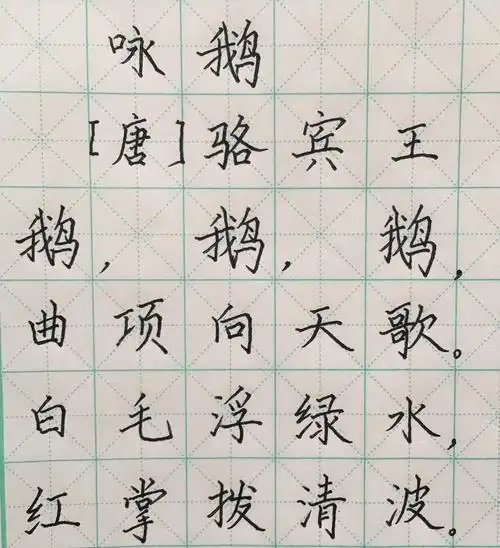 咏鹅
[唐]骆宾王
鹅,鹅,鹅,
曲项向天歌。
白毛浮绿水,
红掌拨清波。